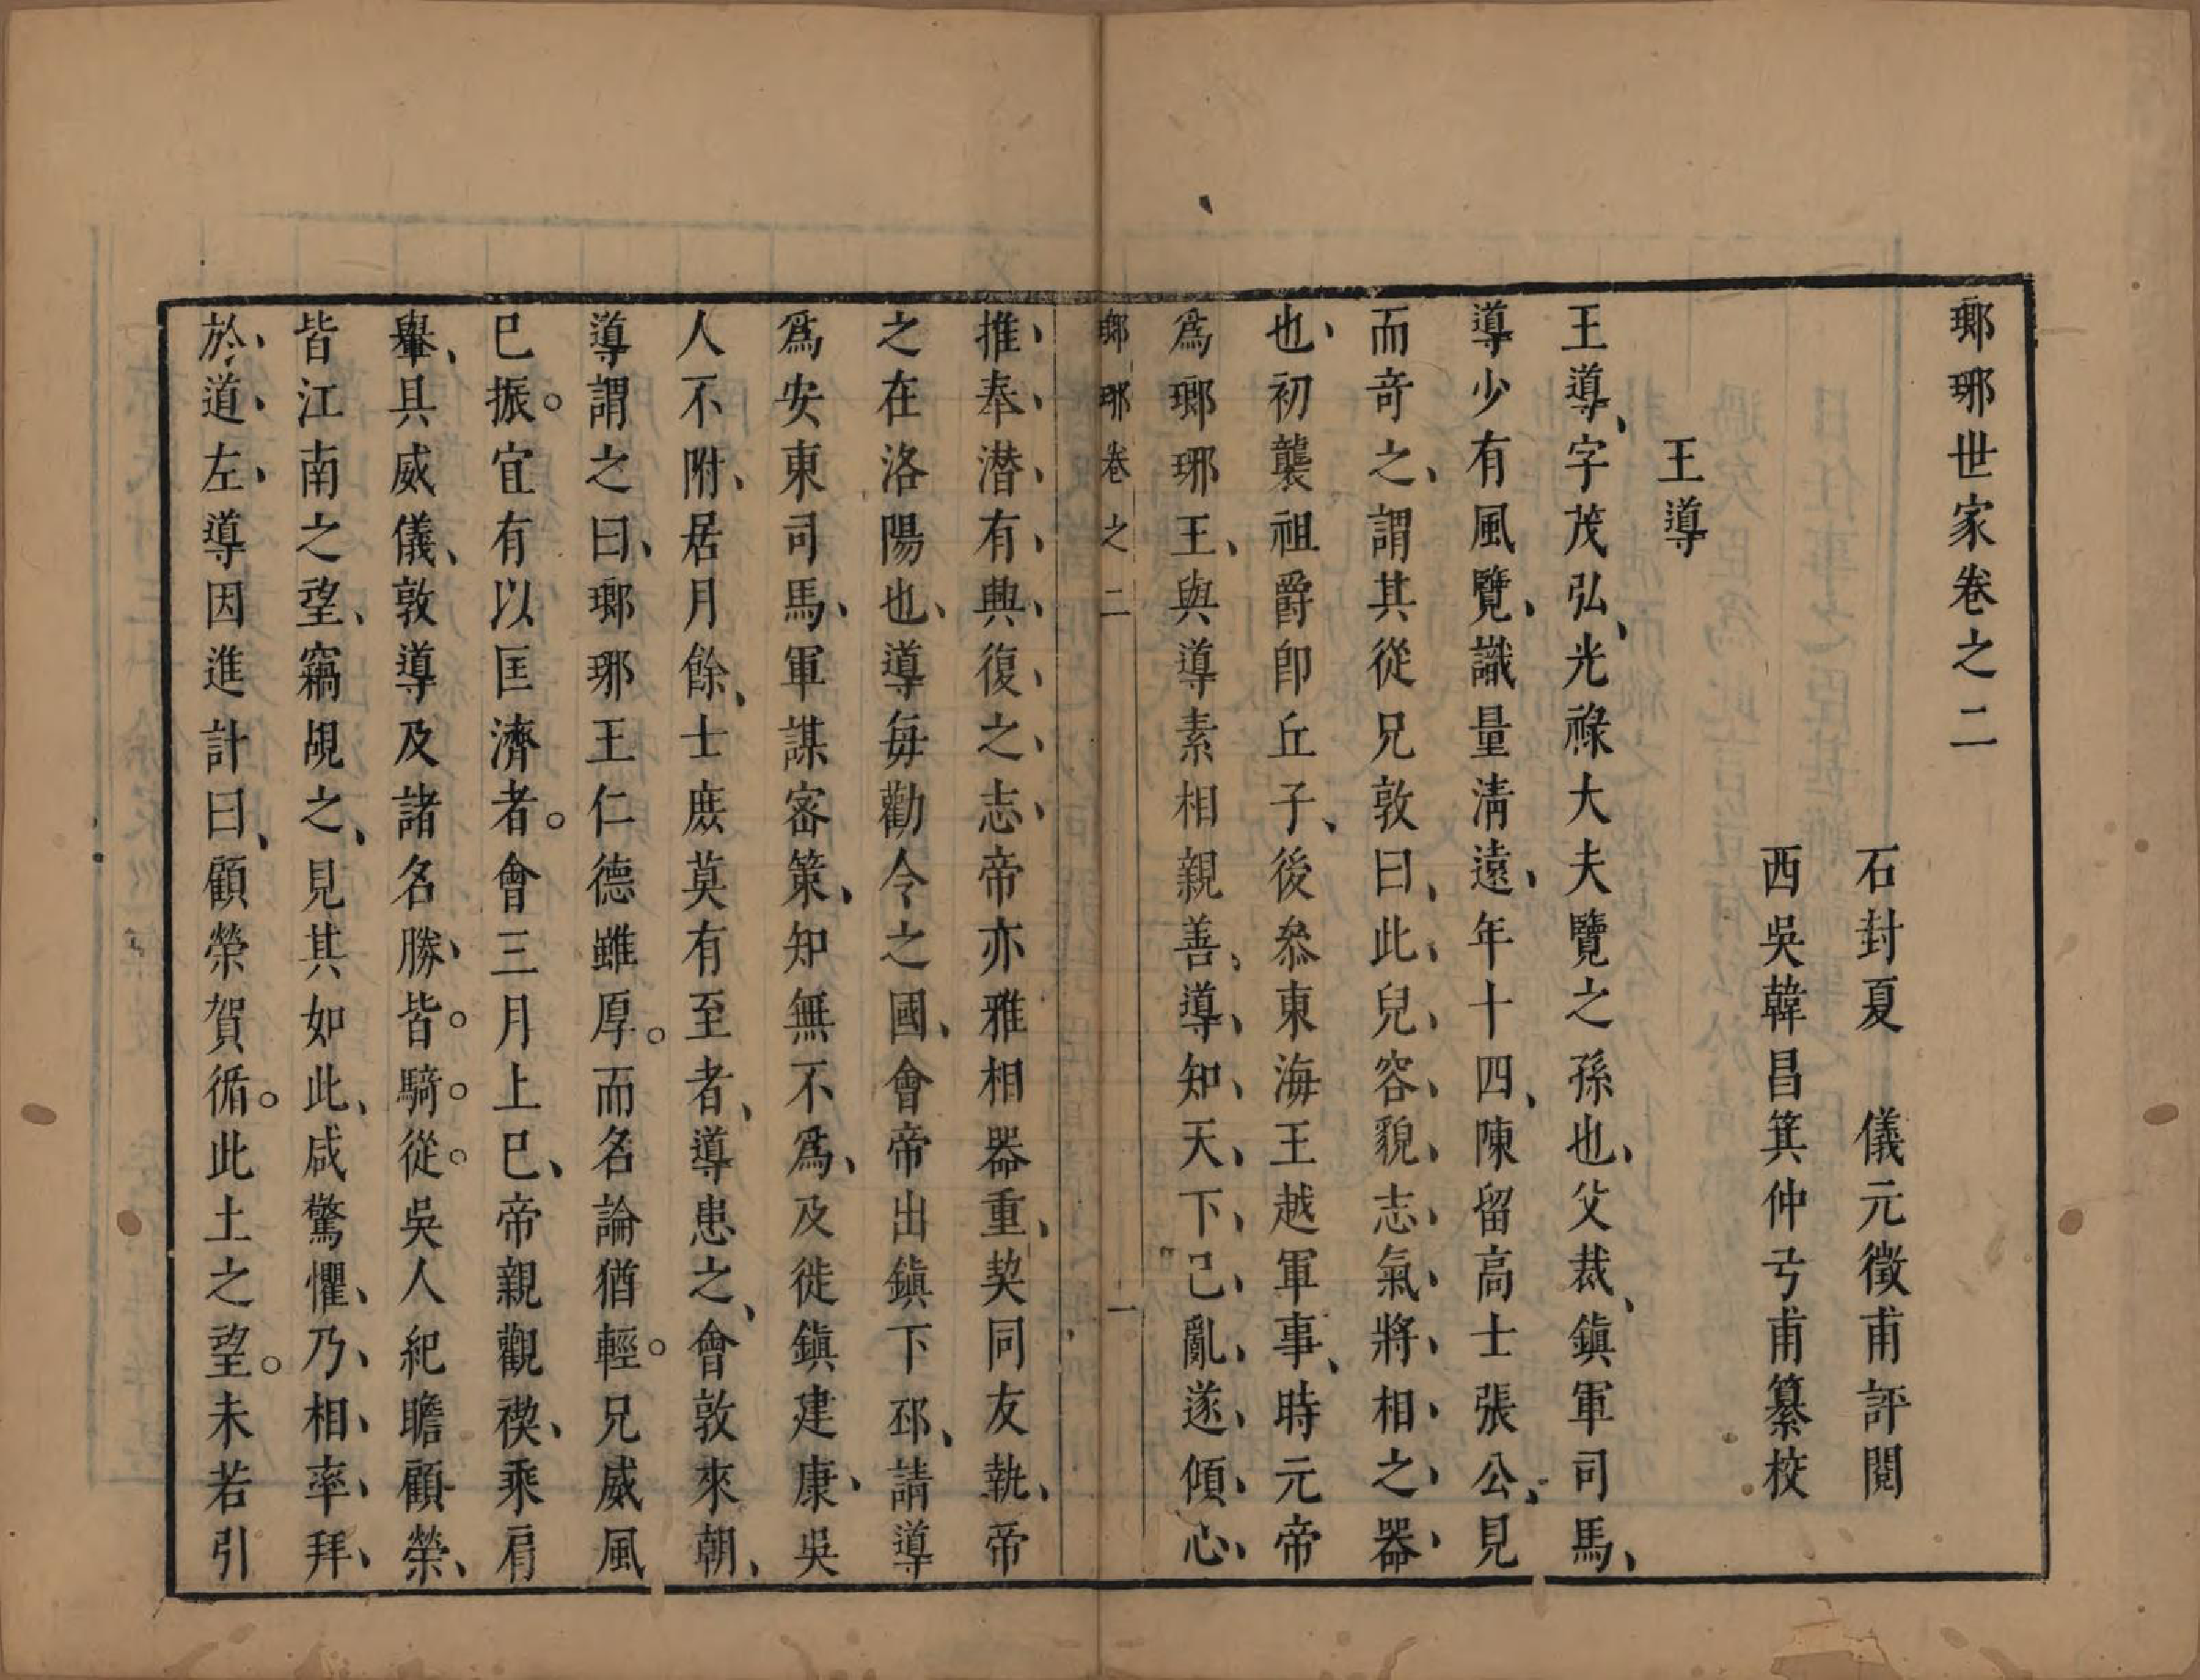 瑯琊世家卷之二
石封夏　儀元徵甫評閱
西吳韓昌箕仲弓甫纂校
王導
王導、字茂弘、光祿大夫覽之孫也、父裁、鎮軍司馬、
導少有風覽、識量清遠、年十四、陳留高士張公、見
而奇之、謂其從兄敦曰、此兒容貌志氣將相之器
也、初襲祖爵即丘子、後叅東海王越軍事、時元帝
為瑯琊王、與導素相親善、導知天下已亂、遂傾心
瑯琊卷之二　一
推奉潜有興復之志帝亦雅相器重、契同友執、帝
之在洛陽也、導每勸令之國、會帝出鎮下邳、請導
為安東司馬、軍謀宻策、知無不為、及徙鎮建康、吳
人不附、居月餘、士庶莫有至者、導患之、會敦來朝、
導謂之曰、瑯琊王仁德雖厚。而名論猶輕。兄威風
已振。宜有以匡濟者。會三月上巳、帝親觀禊、乘肩
轝、具威儀、敦導及諸名勝、皆。騎。從。吳人紀瞻顧榮、
皆江南之望、竊覘之、見其如此、咸驚懼、乃相率拜
於道左、導因進計曰、顧榮賀循。此土之望。未若引